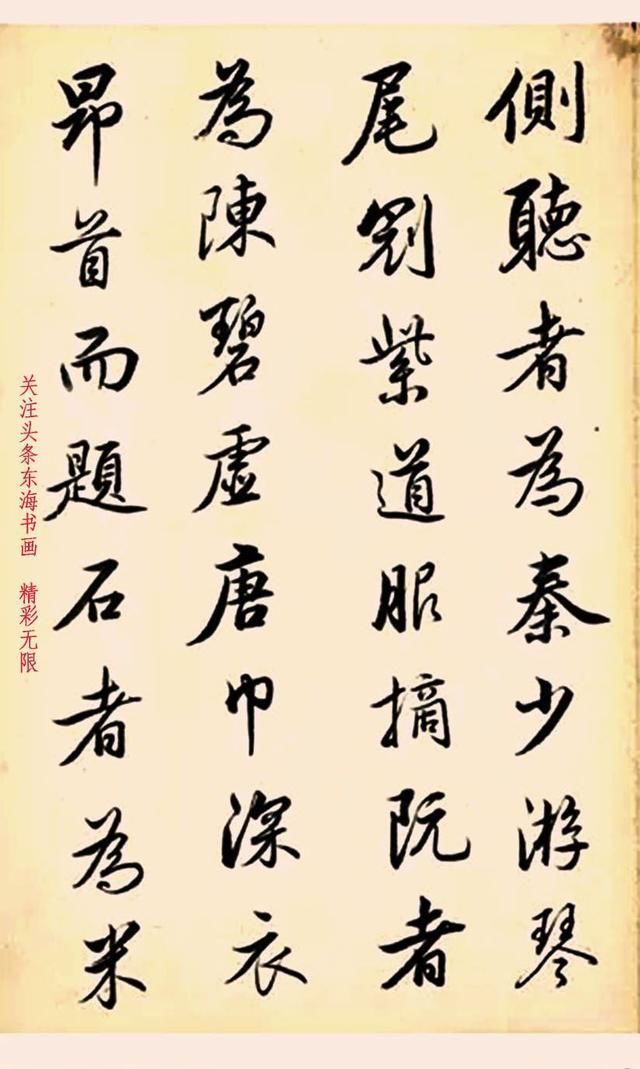 側聽者為秦少游琴
尾冠紫道服摘阮者
為陳碧虛唐巾深衣
昂首而題石者為米
关注头条东海书画 精彩无限